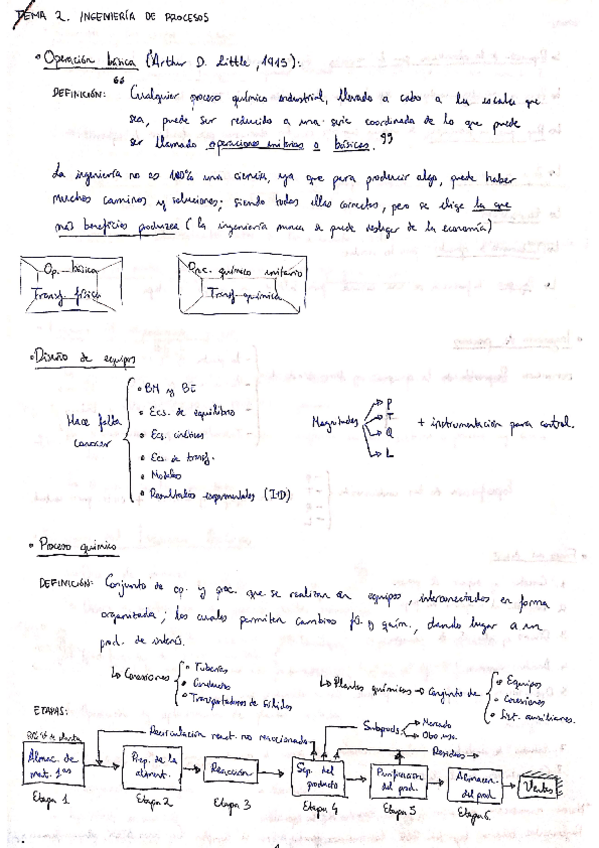 TEMA 2. INGENIERÍA DE PROCESOS
• Operación básica (Arthur D. Little, 1915):
DEFINICIÓN: "Cualquier proceso químico industrial, llevado a cabo a la escala que
sea, puede ser reducido a una serie coordinada de lo que puede
ser llamado operaciones unitarias o básicas."
La ingeniería no es 100% una ciencia, ya que para producir algo, puede haber
muchos caminos y soluciones; siendo todos ellos correctos, pero se elige la que
más beneficios produzca (la ingeniería nunca se puede desligar de la economía)
Op. básica
Transf. física
Proc. químico unitario
Transf. química
• Diseño de equipos
Hace falta
conocer
• BM y BE
• Ecs. de equilibrio
• Ecs. cinéticas
• Ecs. de transf.
• Modelos
• Resultados experimentales (I+D)
Magnitudes
P
T
Q
L
+ instrumentación para control.
• Proceso químico
DEFINICIÓN: Conjunto de op. y proc. que se realizan en equipos, interconectados en forma
organizada; los cuales permiten cambios fís. y quím., dando lugar a un
prod. de interés.
↳ Conexiones
• Tuberías
• Conductos
• Transportadores de sólidos
↳ Plantas químicas → Conjunto de
• Equipos
• Conexiones
• Sist. auxiliares.
ETAPAS:
Recirculación react. no reaccionados
Subprods.
Mercado
Residuos
Almac. de
mat. 1as
Etapa 1
Prep. de la
aliment.
Etapa 2
Reacción
Etapa 3
Sep. del
producto
Etapa 4
Purificación
del prod.
Etapa 5
Almacen.
del prod.
Etapa 6
Ventas